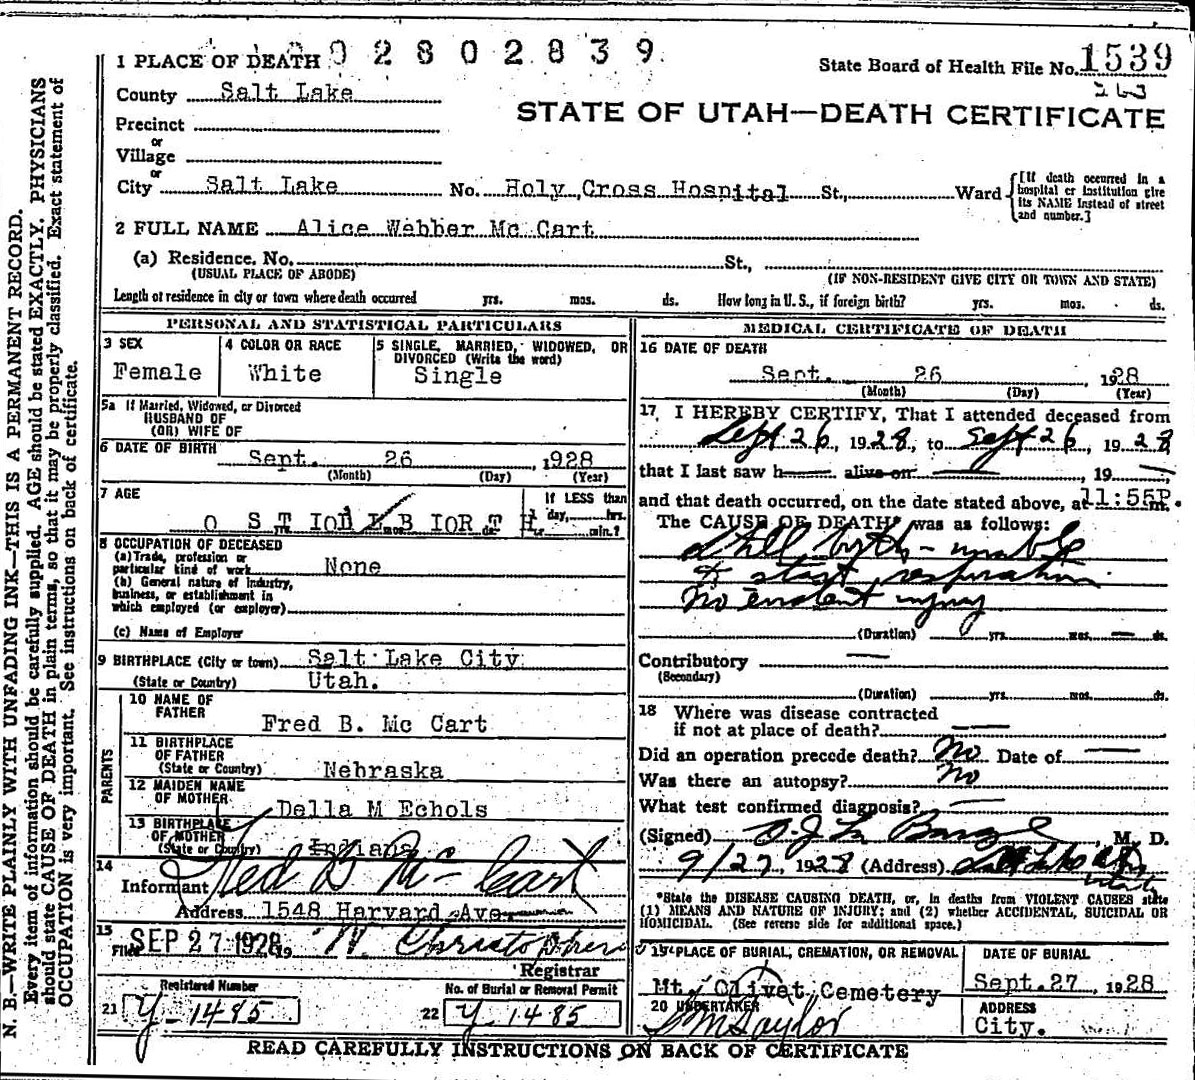 1 PLACE OF DEATH 02802839
State Board of Health File No. 1539
263
County Salt Lake
STATE OF UTAH—DEATH CERTIFICATE
Precinct
or
Village
or
City Salt Lake No. Holy Cross Hospital St., Ward
[If death occurred in a hospital or institution give its NAME instead of street and number.]
2 FULL NAME Alice Webber Mc Cart
(a) Residence. No. St.,
(USUAL PLACE OF ABODE) (IF NON-RESIDENT GIVE CITY OR TOWN AND STATE)
Length of residence in city or town where death occurred yrs. mos. ds. How long in U. S., if foreign birth? yrs. mos. ds.
PERSONAL AND STATISTICAL PARTICULARS
3 SEX
Female
4 COLOR OR RACE
White
5 SINGLE, MARRIED, WIDOWED, OR
DIVORCED (Write the word)
Single
5a If Married, Widowed, or Divorced
HUSBAND OF
(OR) WIFE OF
6 DATE OF BIRTH Sept. 26, 1928
(Month) (Day) (Year)
7 AGE
O STIOLLBIORTH
yrs. mos. ds.
If LESS than
1 day, hrs.
or min.?
8 OCCUPATION OF DECEASED
(a) Trade, profession or
particular kind of work None
(b) General nature of Industry,
business, or establishment in
which employed (or employer)
(c) Name of Employer
9 BIRTHPLACE (City or town) Salt Lake City
(State or Country) Utah.
PARENTS
10 NAME OF
FATHER
Fred B. Mc Cart
11 BIRTHPLACE
OF FATHER
(State or Country) Nebraska
12 MAIDEN NAME
OF MOTHER
Della M Echols
13 BIRTHPLACE
OF MOTHER
(State or Country) Indiana
14
Informant Fred B Mc Cart
Address 1548 Harvard Ave
15
Filed SEP 27 1928 19 W. Christophersen
Registrar
Registered Number No. of Burial or Removal Permit
21 Y-1485 22 Y-1485
MEDICAL CERTIFICATE OF DEATH
16 DATE OF DEATH
Sept. 26, 1928
(Month) (Day) (Year)
17 I HEREBY CERTIFY, That I attended deceased from
Sept 26, 1928, to Sept 26, 1928
that I last saw h alive on , 19
and that death occurred, on the date stated above, at 11:55P. m.
The CAUSE OF DEATH* was as follows:
Still birth - unable
to start respiration
No evident injury
(Duration) yrs. mos. ds.
Contributory
(Secondary)
(Duration) yrs. mos. ds.
18 Where was disease contracted
if not at place of death?
Did an operation precede death? No Date of
Was there an autopsy? No
What test confirmed diagnosis?
(Signed) , M. D.
9/27, 1928 (Address) Salt Lake City
Utah
*State the DISEASE CAUSING DEATH, or, in deaths from VIOLENT CAUSES state
(1) MEANS AND NATURE OF INJURY; and (2) whether ACCIDENTAL, SUICIDAL OR
HOMICIDAL. (See reverse side for additional space.)
19 PLACE OF BURIAL, CREMATION, OR REMOVAL
Mt. Olivet Cemetery
DATE OF BURIAL
Sept. 27, 1928
20 UNDERTAKER
S M Taylor
ADDRESS
City.
READ CAREFULLY INSTRUCTIONS ON BACK OF CERTIFICATE
N. B.—WRITE PLAINLY WITH UNFADING INK—THIS IS A PERMANENT RECORD.
Every item of information should be carefully supplied. AGE should be stated EXACTLY. PHYSICIANS
should state CAUSE OF DEATH in plain terms, so that it may be properly classified. Exact statement of
OCCUPATION is very important. See instructions on back of certificate.